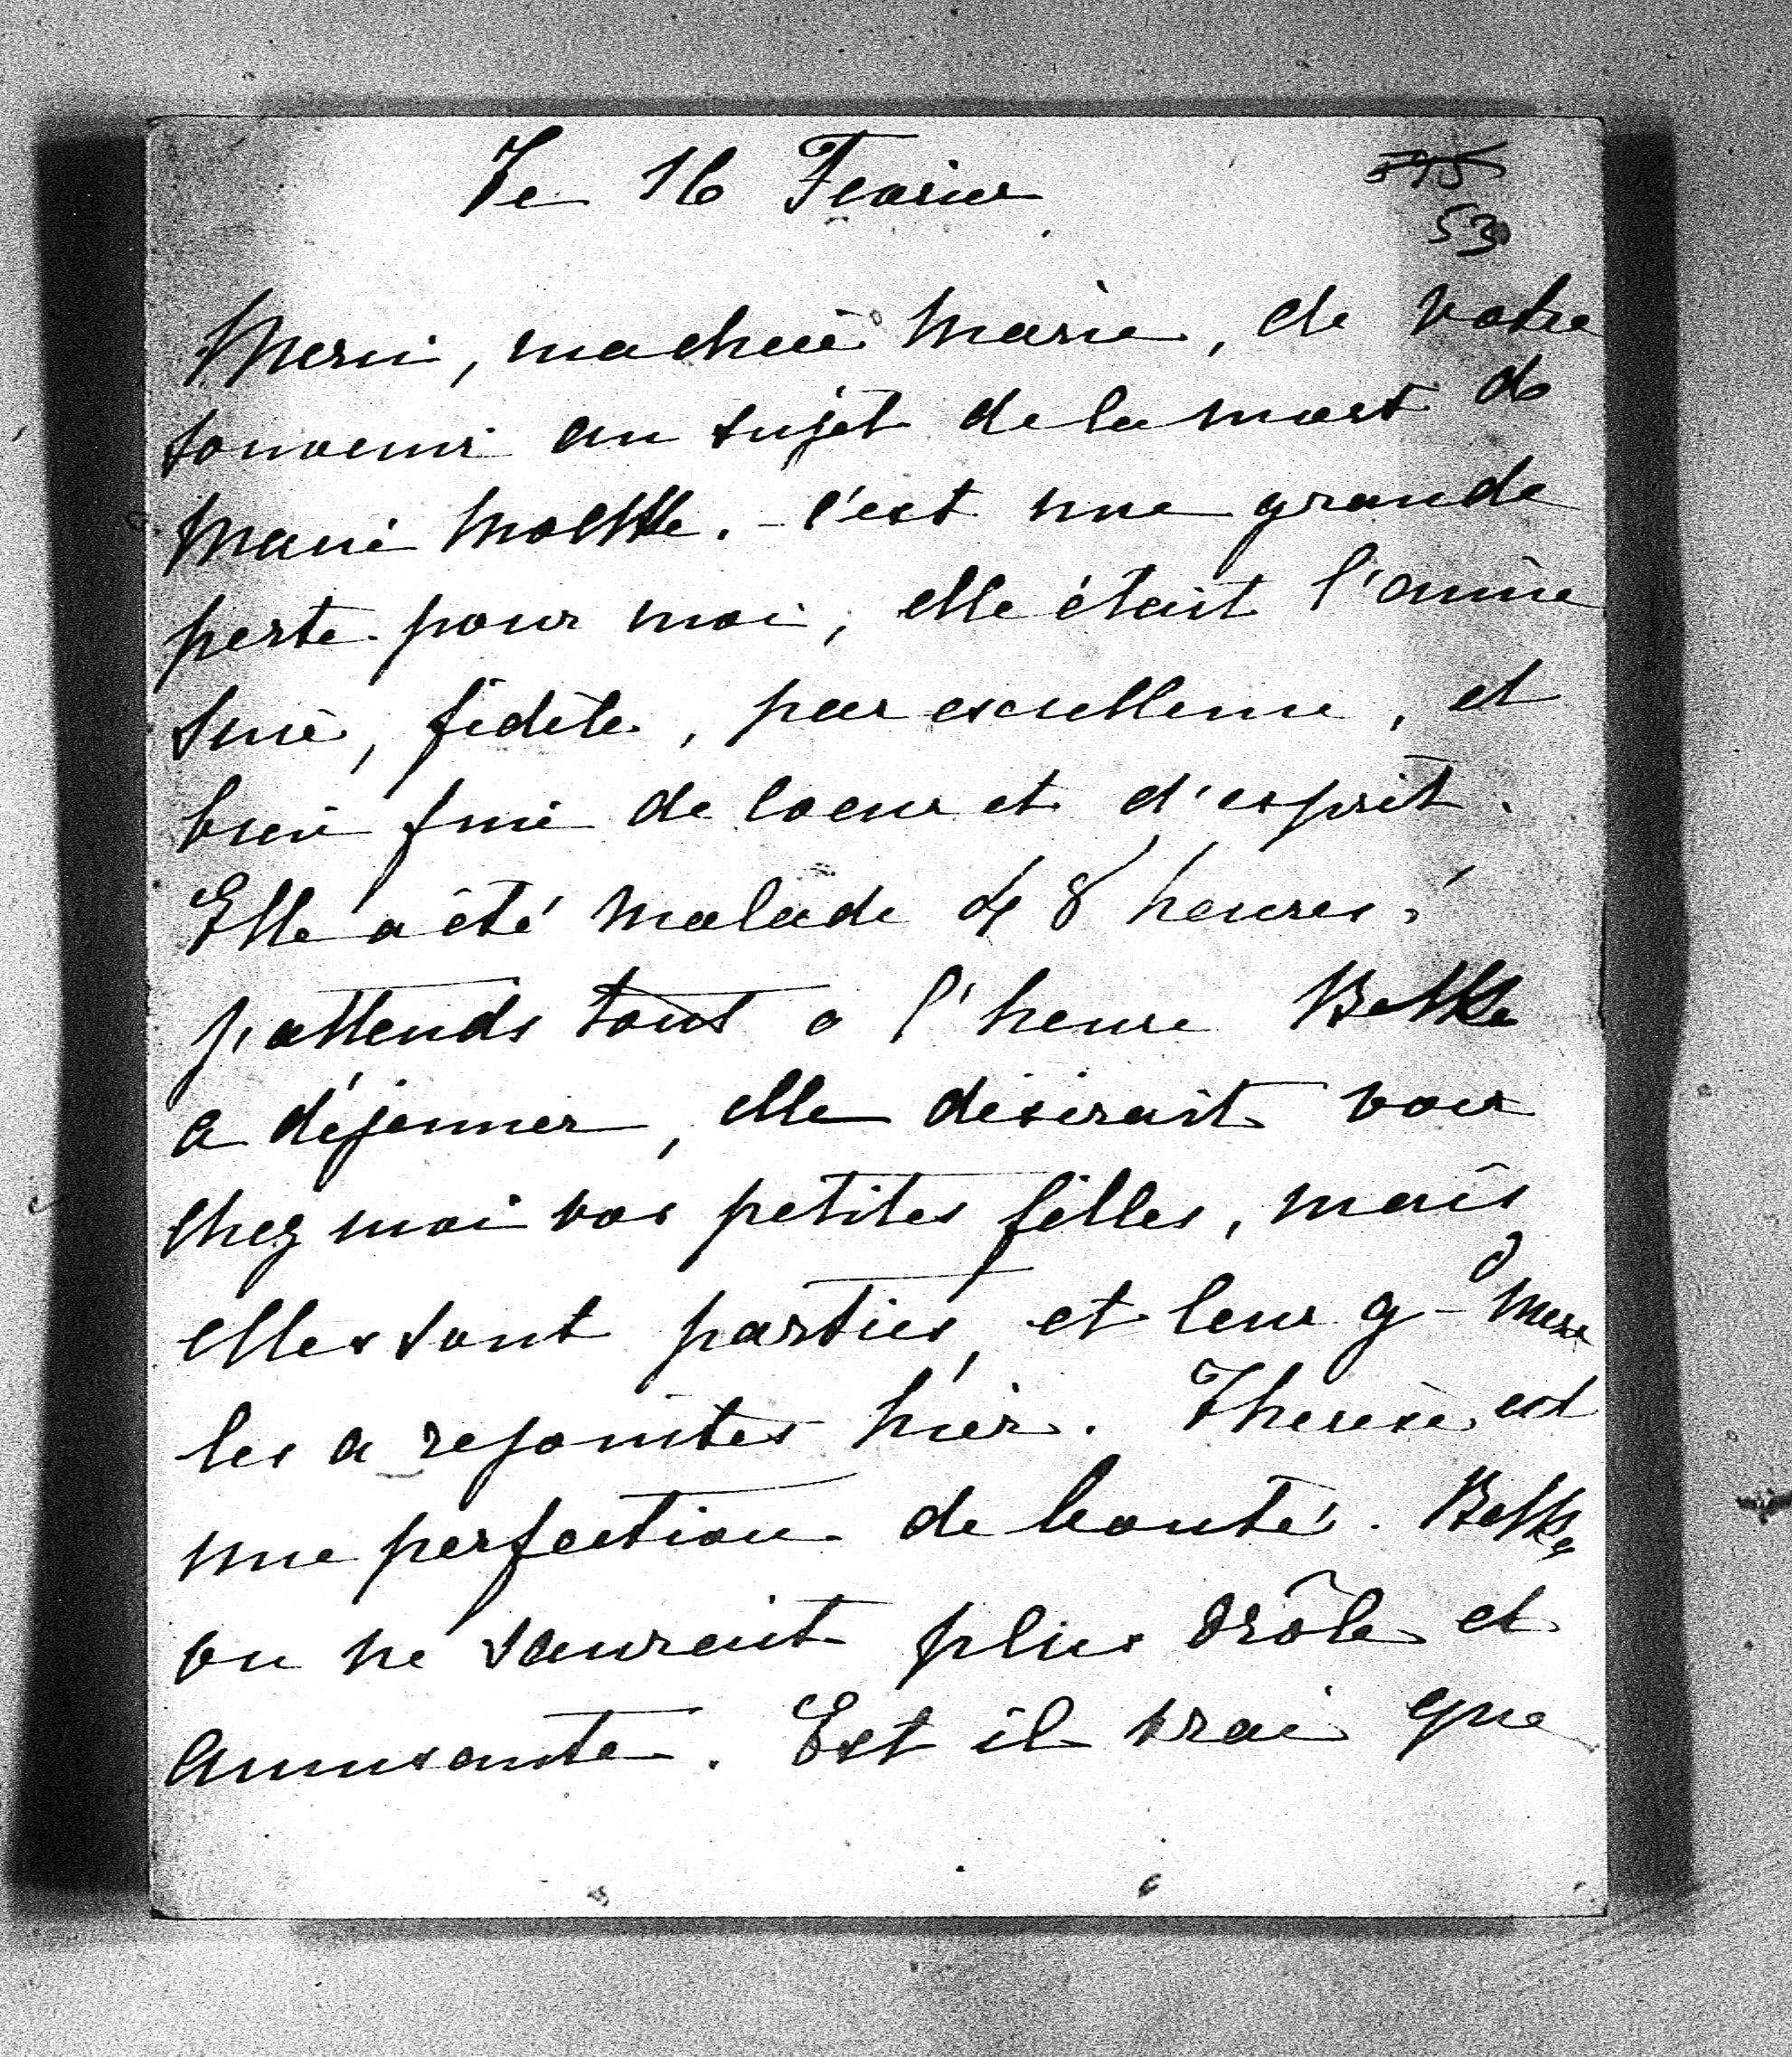 Le 16 Fevrier
53
Merci, ma chère Marie, de votre
souvenir au sujet de la mort de
Marie Moltke. - C'est une grande
perte pour moi, elle était l'amie
sure, fidèle, par excellence, et
bien fine de coeur et d'esprit.
Elle a été malade 48 heures.
J'attends tout a l'heure Betka
a déjeuner, elle désirait voir
chez moi vos petites filles, mais
elles sont parties, et leur gd-mere
les a rejointes hier. Therese est
une perfection de bonté. Betka
on ne saurait plus drôle et
amusante. Est il vrai que